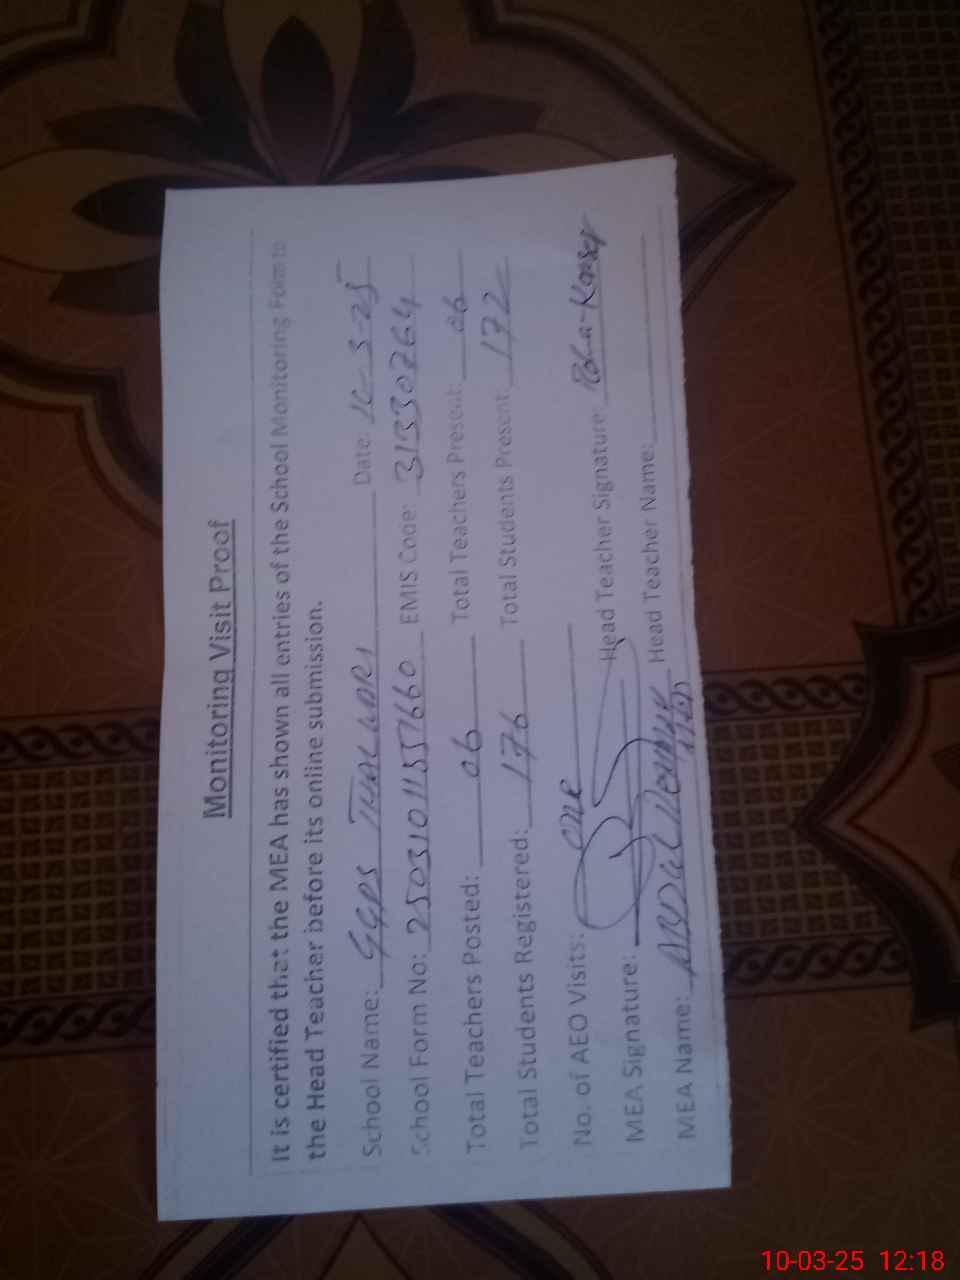 Monitoring Visit Proof
It is certified that the MEA has shown all entries of the School Monitoring Form to
the Head Teacher before its online submission.
School Name: GGPS Date: 10-3-25
School Form No: 25031011557660 EMIS Code: 31330264
Total Teachers Posted: 06 Total Teachers Present: 06
Total Students Registered: 176 Total Students Present: 172
No. of AEO Visits: one
MEA Signature: Head Teacher Signature:
MEA Name: Head Teacher Name:
10-03-25 12:18